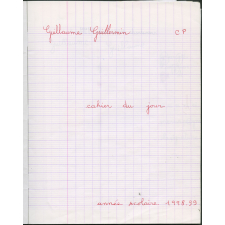 Guillaume Guillermin CP
cahier du jour
année scolaire 1998.99